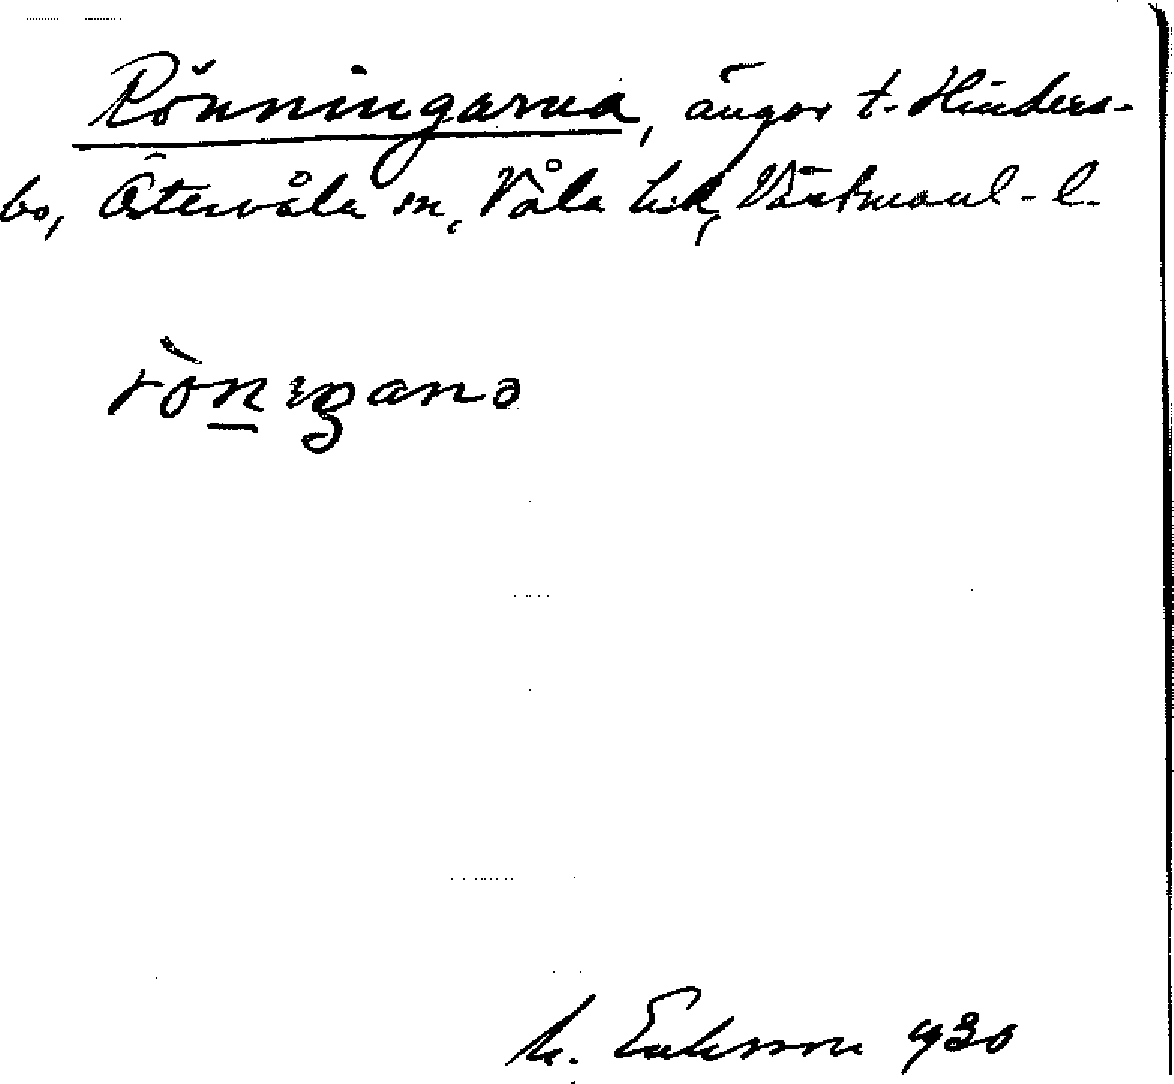 Rönningarna, ängar t. Hinders-
bo, Östervåla sn, Våla hd, Västmanl. l.
rö̀nıŋganə
M. Eriksson 1930